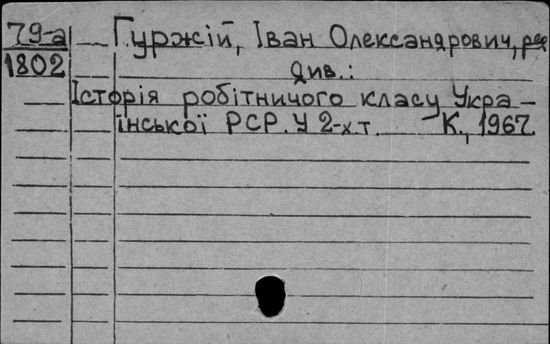 79-а
1802
Гуржій, Іван Олександрович, ред
див.:
Історія робітничого класу Укра-
їнської РСР. У 2-х т. К., 1967.